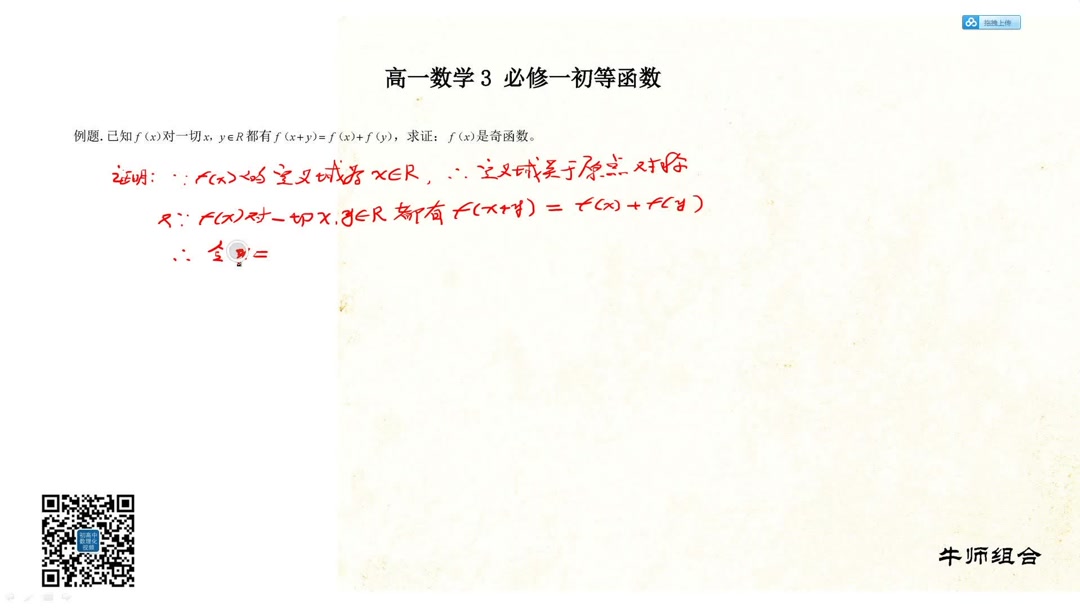 拖拽上传
高一数学 3 必修一初等函数
例题.已知 f (x)对一切 x, y∈R 都有 f (x+y)= f (x)+ f (y)，求证：f (x)是奇函数。
证明：∵ f(x)的定义域为 x∈R，∴ 定义域关于原点对称
又∵ f(x)对一切 x,y∈R 都有 f(x+y) = f(x) + f(y)
∴ 令 =
初高中
数理化
视频
牛师组合